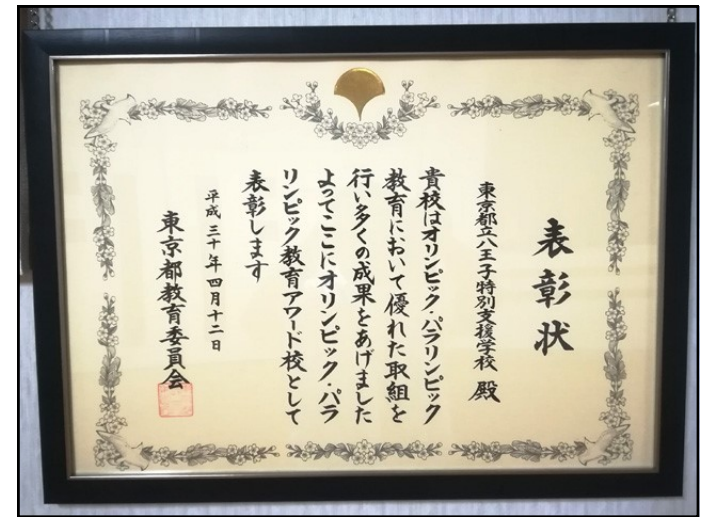 表彰状
東京都立八王子特別支援学校 殿
貴校はオリンピック・パラリンピック
教育において優れた取組を
行い多くの成果をあげました
よってここにオリンピック・パラ
リンピック教育アワード校として
表彰します
平成三十年四月十二日
東京都教育委員会